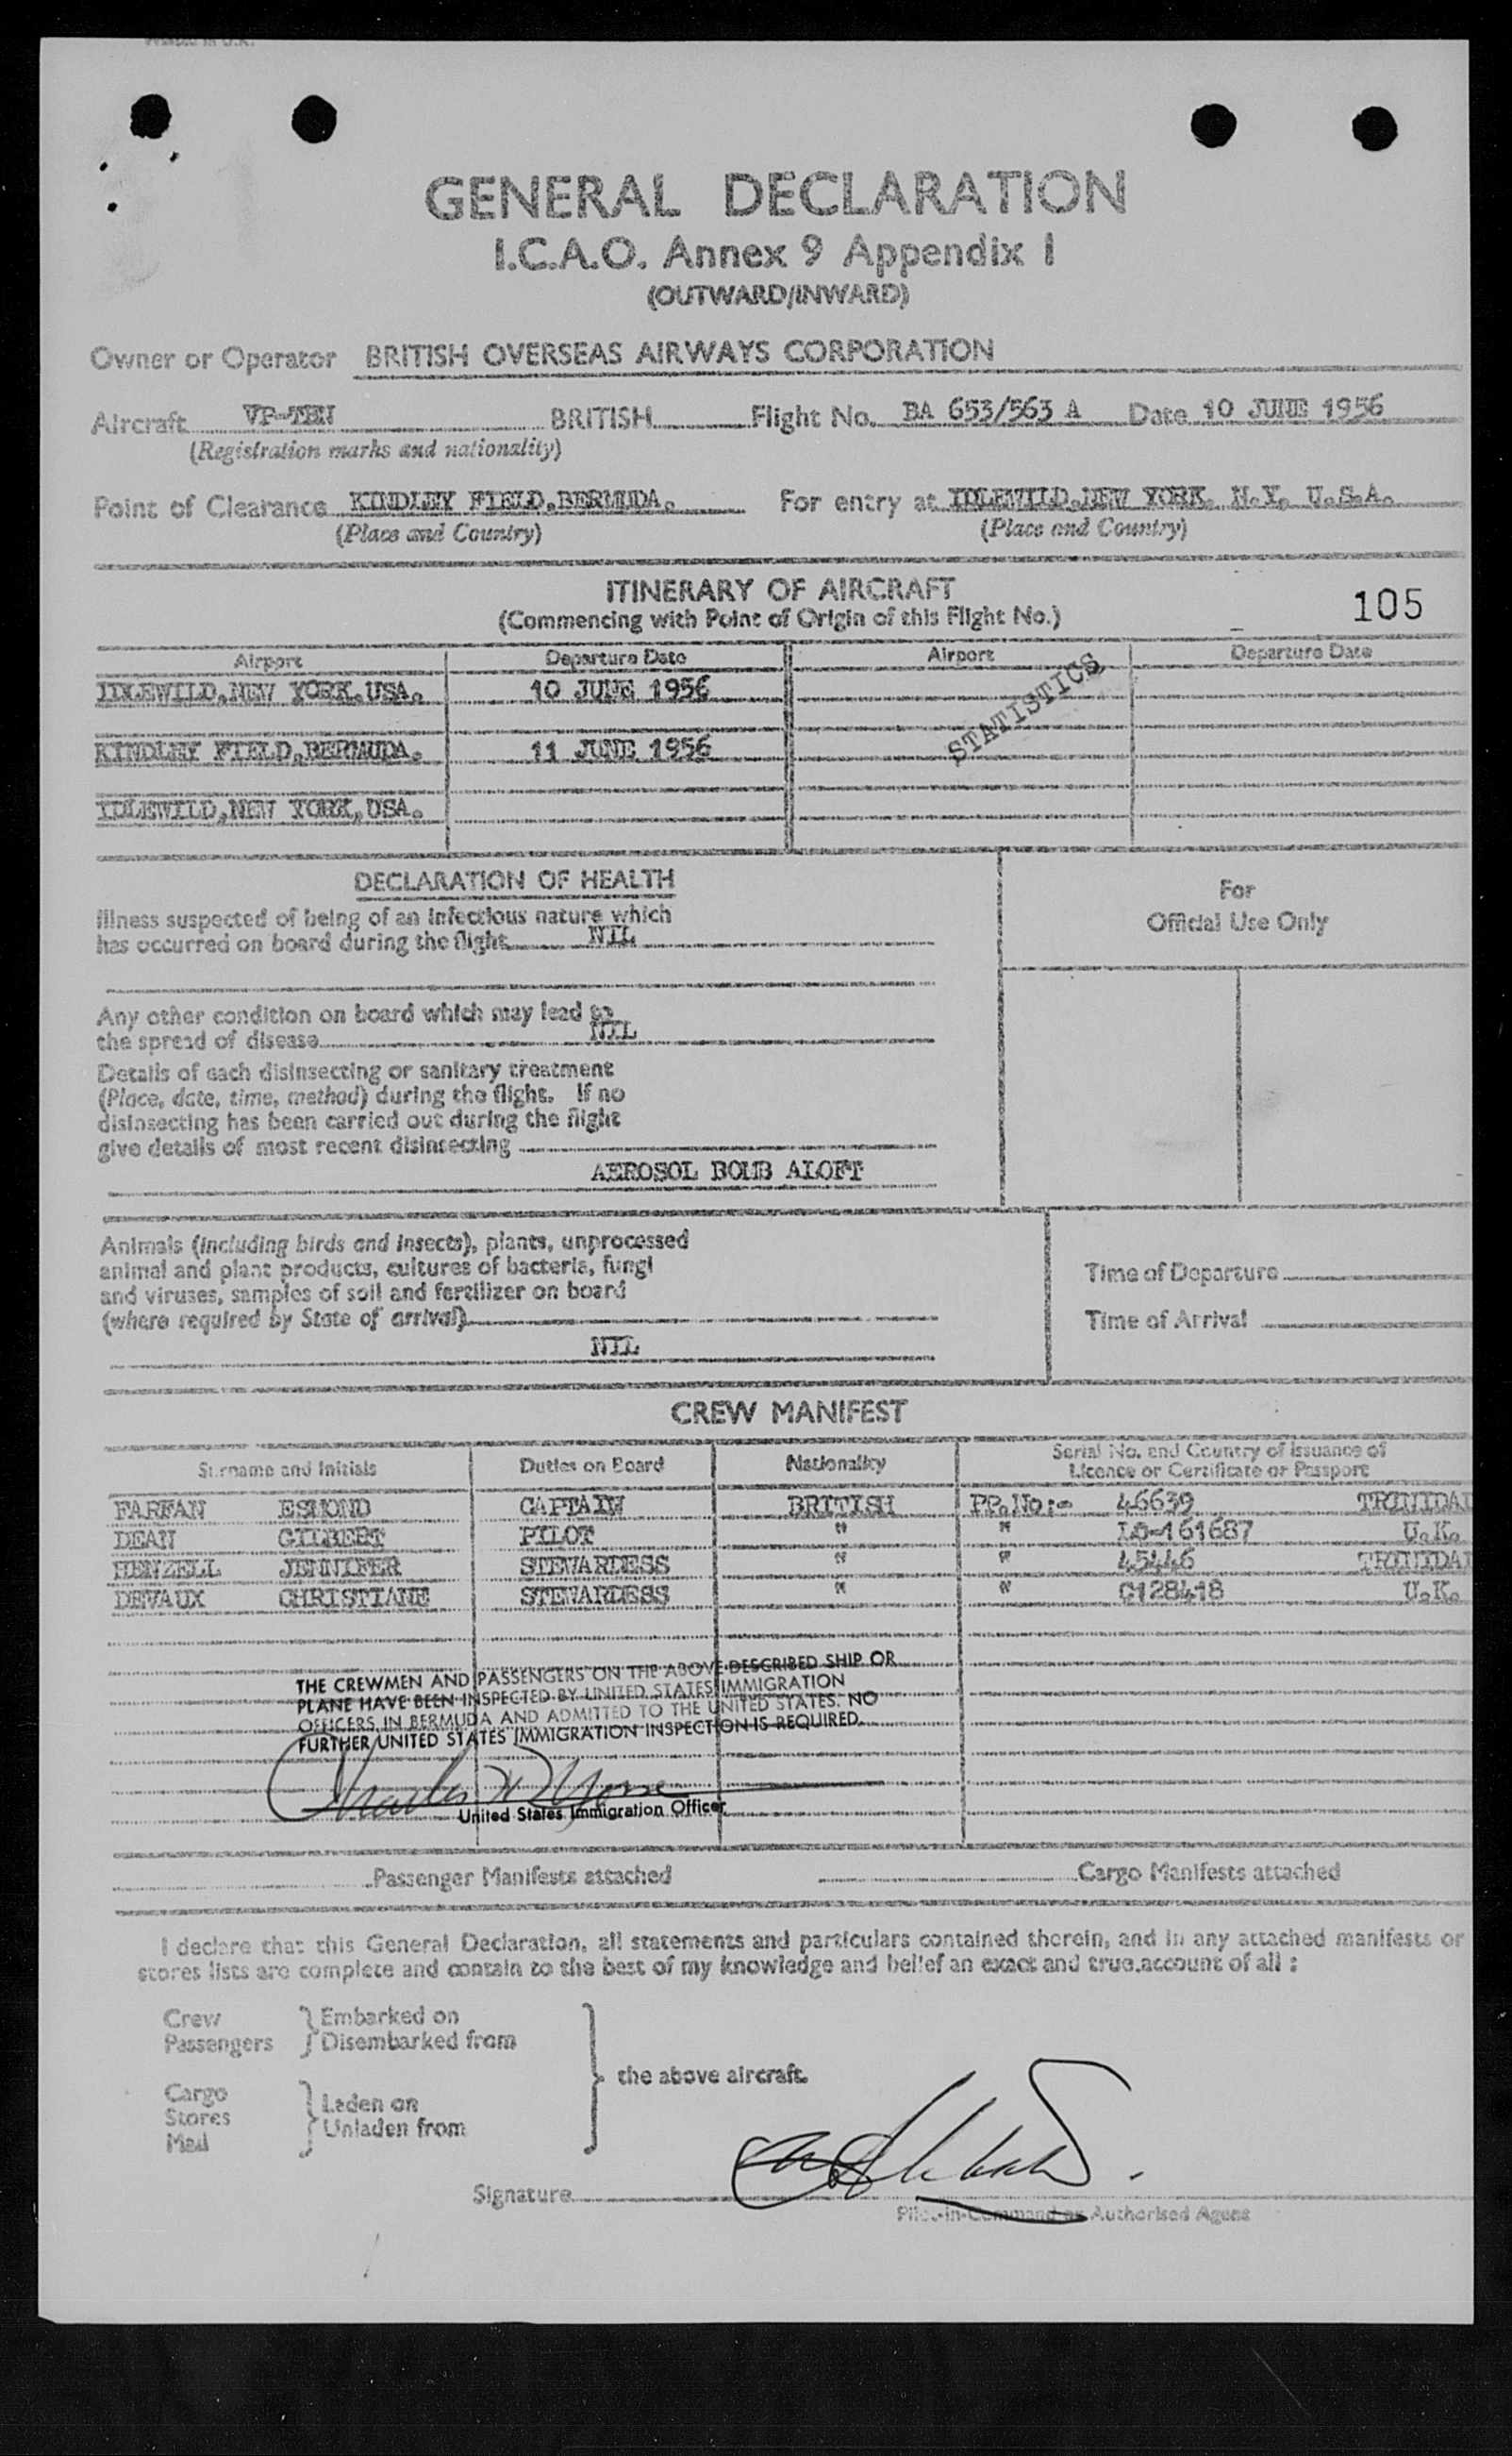 Printed in U.K.
GENERAL DECLARATION
I.C.A.O. Annex 9 Appendix 1
(OUTWARD/INWARD)
Owner or Operator BRITISH OVERSEAS AIRWAYS CORPORATION
Aircraft VP-TBN BRITISH Flight No. BA 653/563 A Date 10 JUNE 1956
(Registration marks and nationality)
Point of Clearance KINDLEY FIELD,BERMUDA. For entry at IDLEWILD,NEW YORK. N.Y. U.S.A.
(Place and Country) (Place and Country)
ITINERARY OF AIRCRAFT
(Commencing with Point of Origin of this Flight No.)
105
Airport Departure Date Airport Departure Date
IDLEWILD,NEW YORK,USA. 10 JUNE 1956
STATISTICS
KINDLEY FIELD,BERMUDA. 11 JUNE 1956
IDLEWILD,NEW YORK,USA.
DECLARATION OF HEALTH
Illness suspected of being of an infectious nature which
has occurred on board during the flight NIL
For
Official Use Only
Any other condition on board which may lead to
the spread of disease NIL
Details of each disinsecting or sanitary treatment
(Place, date, time, method) during the flight. If no
disinsecting has been carried out during the flight
give details of most recent disinsecting
AEROSOL BOMB ALOFT
Animals (including birds and insects), plants, unprocessed
animal and plant products, cultures of bacteria, fungi
and viruses, samples of soil and fertilizer on board
(where required by State of arrival)
NIL
Time of Departure
Time of Arrival
CREW MANIFEST
Surname and Initials Duties on Board Nationality Serial No. and Country of issuance of
Licence or Certificate or Passport
FARFAN ESMOND CAPTAIN BRITISH PP.No:- 46639 TRINIDAD
DEAN GILBERT PILOT " " LO-161687 U.K.
HENZELL JENNIFER STEWARDESS " " 45446 TRINIDAD
DEVAUX CHRISTIANE STEWARDESS " " C128418 U.K.
THE CREWMEN AND PASSENGERS ON THE ABOVE DESCRIBED SHIP OR
PLANE HAVE BEEN INSPECTED BY UNITED STATES IMMIGRATION
OFFICERS IN BERMUDA AND ADMITTED TO THE UNITED STATES. NO
FURTHER UNITED STATES IMMIGRATION INSPECTION IS REQUIRED.
United States Immigration Officer
Passenger Manifests attached Cargo Manifests attached
I declare that this General Declaration, all statements and particulars contained therein, and in any attached manifests or
stores lists are complete and contain to the best of my knowledge and belief an exact and true account of all :
Crew
Passengers
Embarked on
Disembarked from
Cargo
Stores
Mail
Laden on
Unladen from
the above aircraft.
Signature
Pilot-in-Command or Authorised Agent